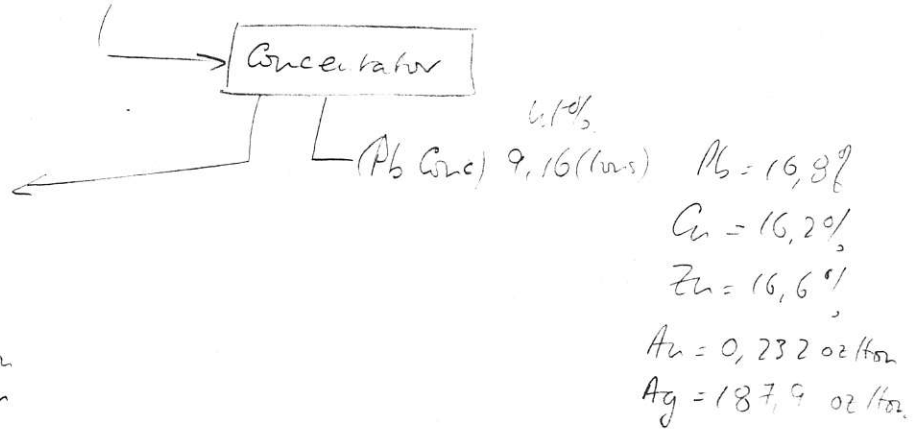 Concentrator
(Pb Conc) 9,16 (tons) Pb = 16,8%
Cu = 16,2%
Zn = 16,6%
Au = 0,232 oz/ton
Ag = 187,9 oz/ton